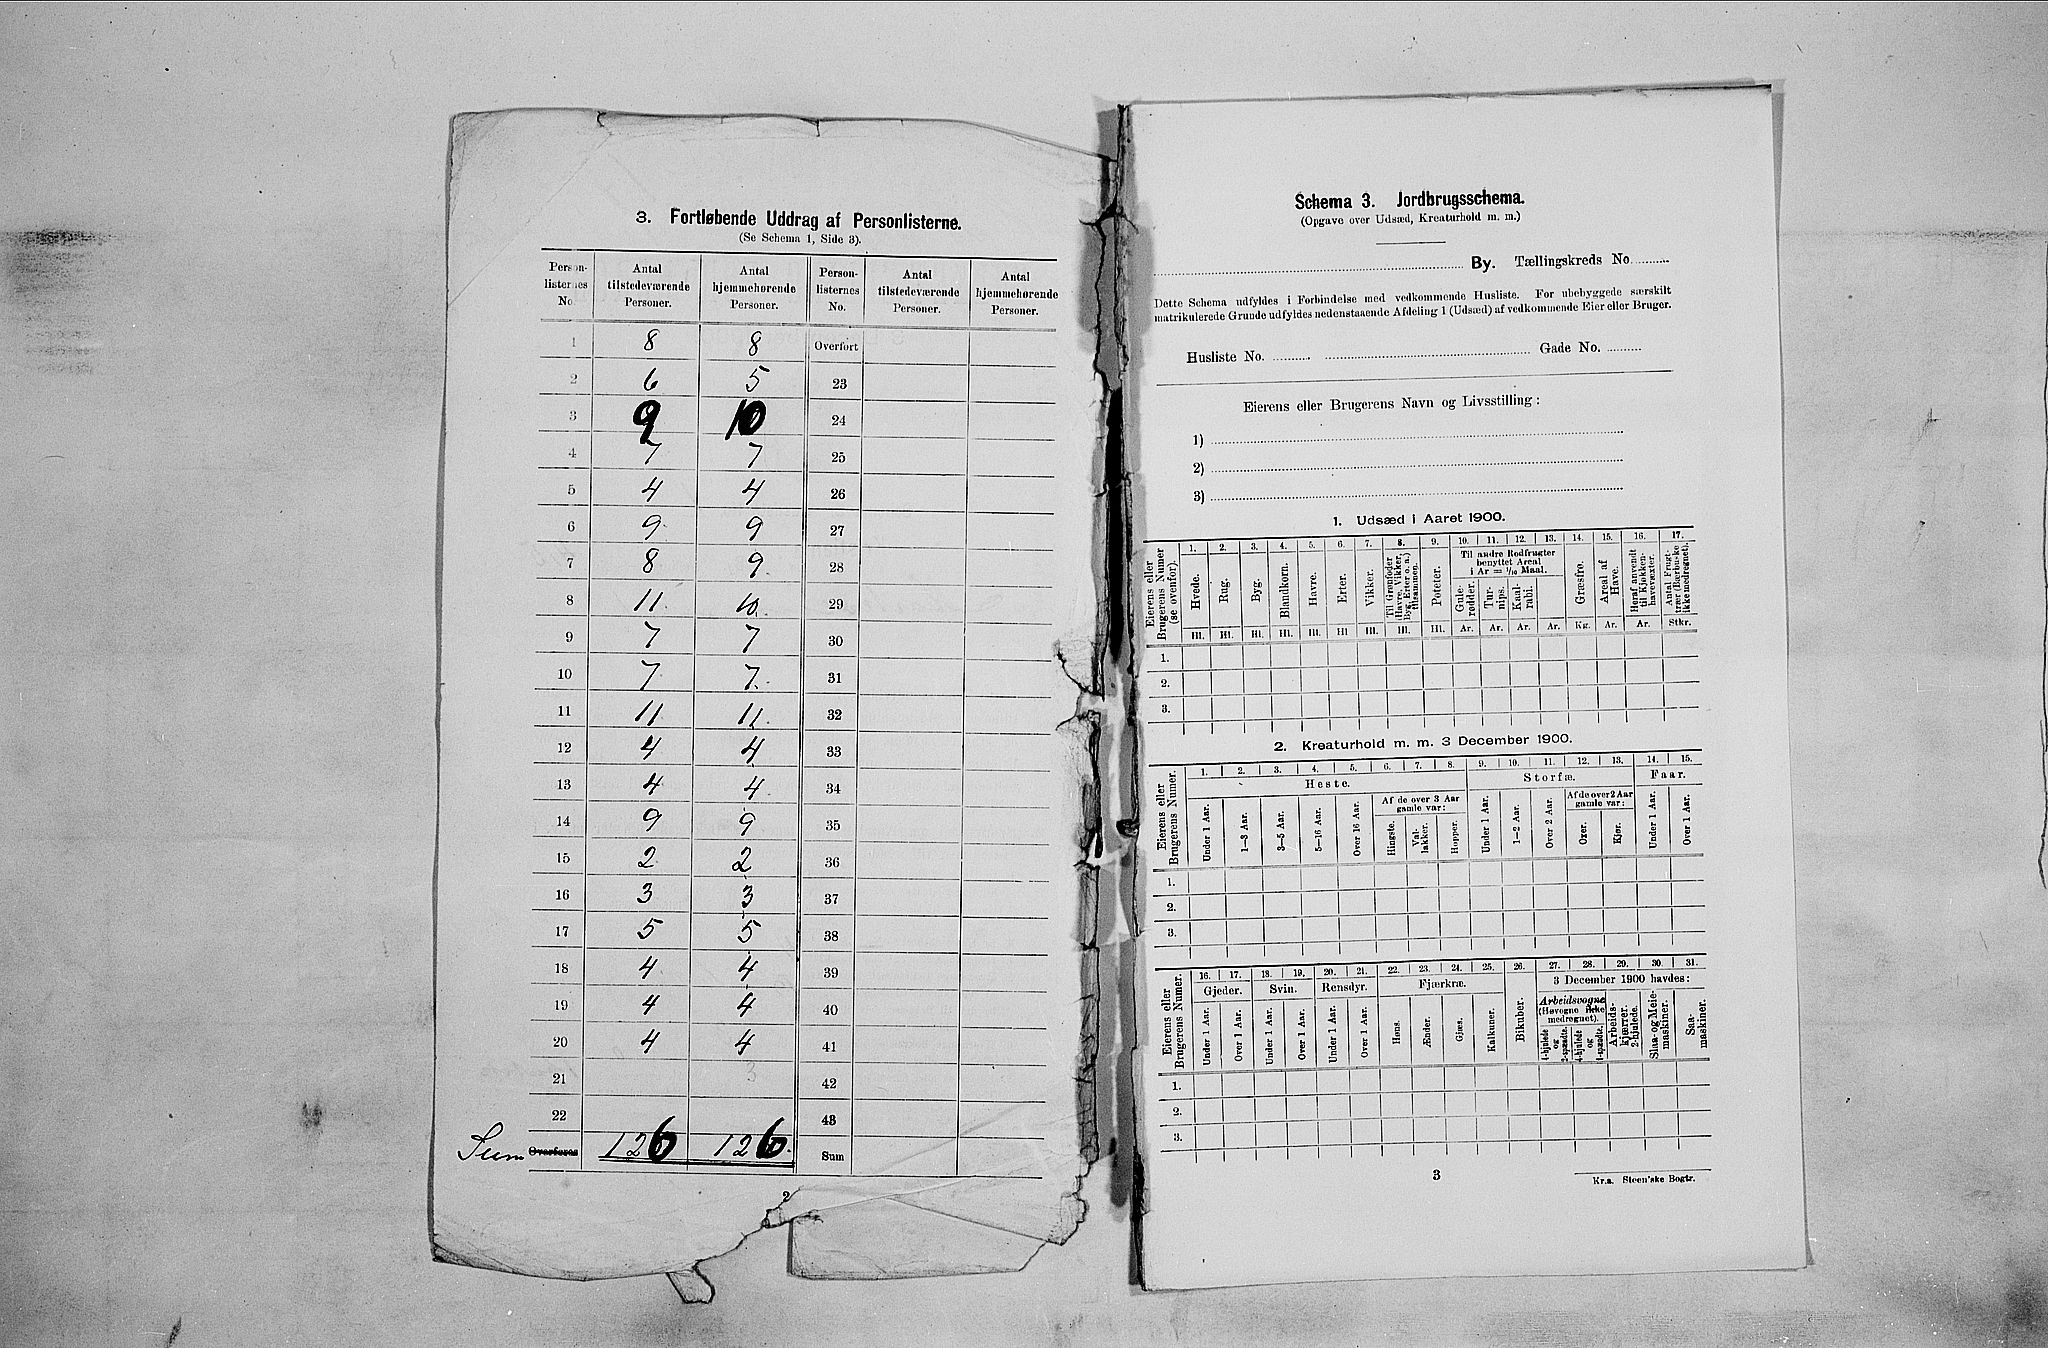 3. Fortløbende Uddrag af Personlisterne.
(Se Schema 1, Side 3).
Person-listernes No. Antal tilstedeværende Personer. Antal hjemmehørende Personer. Person-listernes No. Antal tilstedeværende Personer. Antal hjemmehørende Personer.
1 8 8 Overført
2 6 5 23
3 9 10 24
4 7 7 25
5 4 4 26
6 9 9 27
7 8 9 28
8 11 10 29
9 7 7 30
10 7 7 31
11 11 11 32
12 4 4 33
13 4 4 34
14 9 9 35
15 2 2 36
16 3 3 37
17 5 5 38
18 4 4 39
19 4 4 40
20 4 4 41
21 3 42
22 43
Sum Overføres 126 126 Sum
2
Schema 3. Jordbrugsschema.
(Opgave over Udsæd, Kreaturhold m. m.)
By. Tællingskreds No
Dette Schema udfyldes i Forbindelse med vedkommende Husliste. For ubebyggede særskilt
matrikulerede Grunde udfyldes nedenstaaende Afdeling 1 (Udsæd) af vedkommende Eier eller Bruger.
Husliste No. Gade No.
Eierens eller Brugerens Navn og Livsstilling:
1)
2)
3)
1. Udsæd i Aaret 1900.
Eierens eller Brugerens Numer (se ovenfor).
1. 2. 3. 4. 5. 6. 7. 8. 9. 10. 11. 12. 13. 14. 15. 16. 17.
Til andre Rodfrugter benyttet Areal i Ar = 1/10 Maal.
Hvede. Rug. Byg. Blandkorn. Havre. Erter. Vikker. Til Grønfoder (Havre, Vikker, Byg, Erter o. a.) tilsammen. Poteter. Gule-rødder. Tur-nips. Kaal-rabi. Græsfrø. Areal af Have. Heraf anvendt til Kjøkken-havevæxter. Antal Frugt-trær (Bærbuske ikke medregnet).
Hl. Hl. Hl. Hl. Hl. Hl. Hl. Hl. Hl. Ar. Ar. Ar. Ar. Kg. Ar. Ar. Stkr.
1.
2.
3.
2. Kreaturhold m. m. 3 December 1900.
Eierens eller Brugerens Numer.
1. 2. 3. 4. 5. 6. 7. 8. 9. 10. 11. 12. 13. 14. 15.
Heste. Storfæ. Faar.
Af de over 3 Aar gamle var: Af de over 2 Aar gamle var:
Under 1 Aar. 1—3 Aar. 3—5 Aar. 5—16 Aar. Over 16 Aar. Hingste. Val-lakker. Hopper. Under 1 Aar. 1—2 Aar. Over 2 Aar. Oxer. Kjør. Under 1 Aar. Over 1 Aar.
1.
2.
3.
Eierens eller Brugerens Numer.
16. 17. 18. 19. 20. 21. 22. 23. 24. 25. 26. 27. 28. 29. 30. 31.
Gjeder. Svin. Rensdyr. Fjærkræ. Bikuber. 3 December 1900 havdes:
Arbeidsvogne (Høvogne ikke medregnet).
Under 1 Aar. Over 1 Aar. Under 1 Aar. Over 1 Aar. Under 1 Aar. Over 1 Aar. Høns. Ænder. Gjæs. Kalkuner. 4-hjulede og 2-spændte. 4-hjulede og 1-spændte. Arbeids-kjærrer. 2-hjulede. Slaa- og Meie-maskiner. Saa-maskiner.
1.
2.
3.
3
Kr.a. Steen'ske Bogtr.